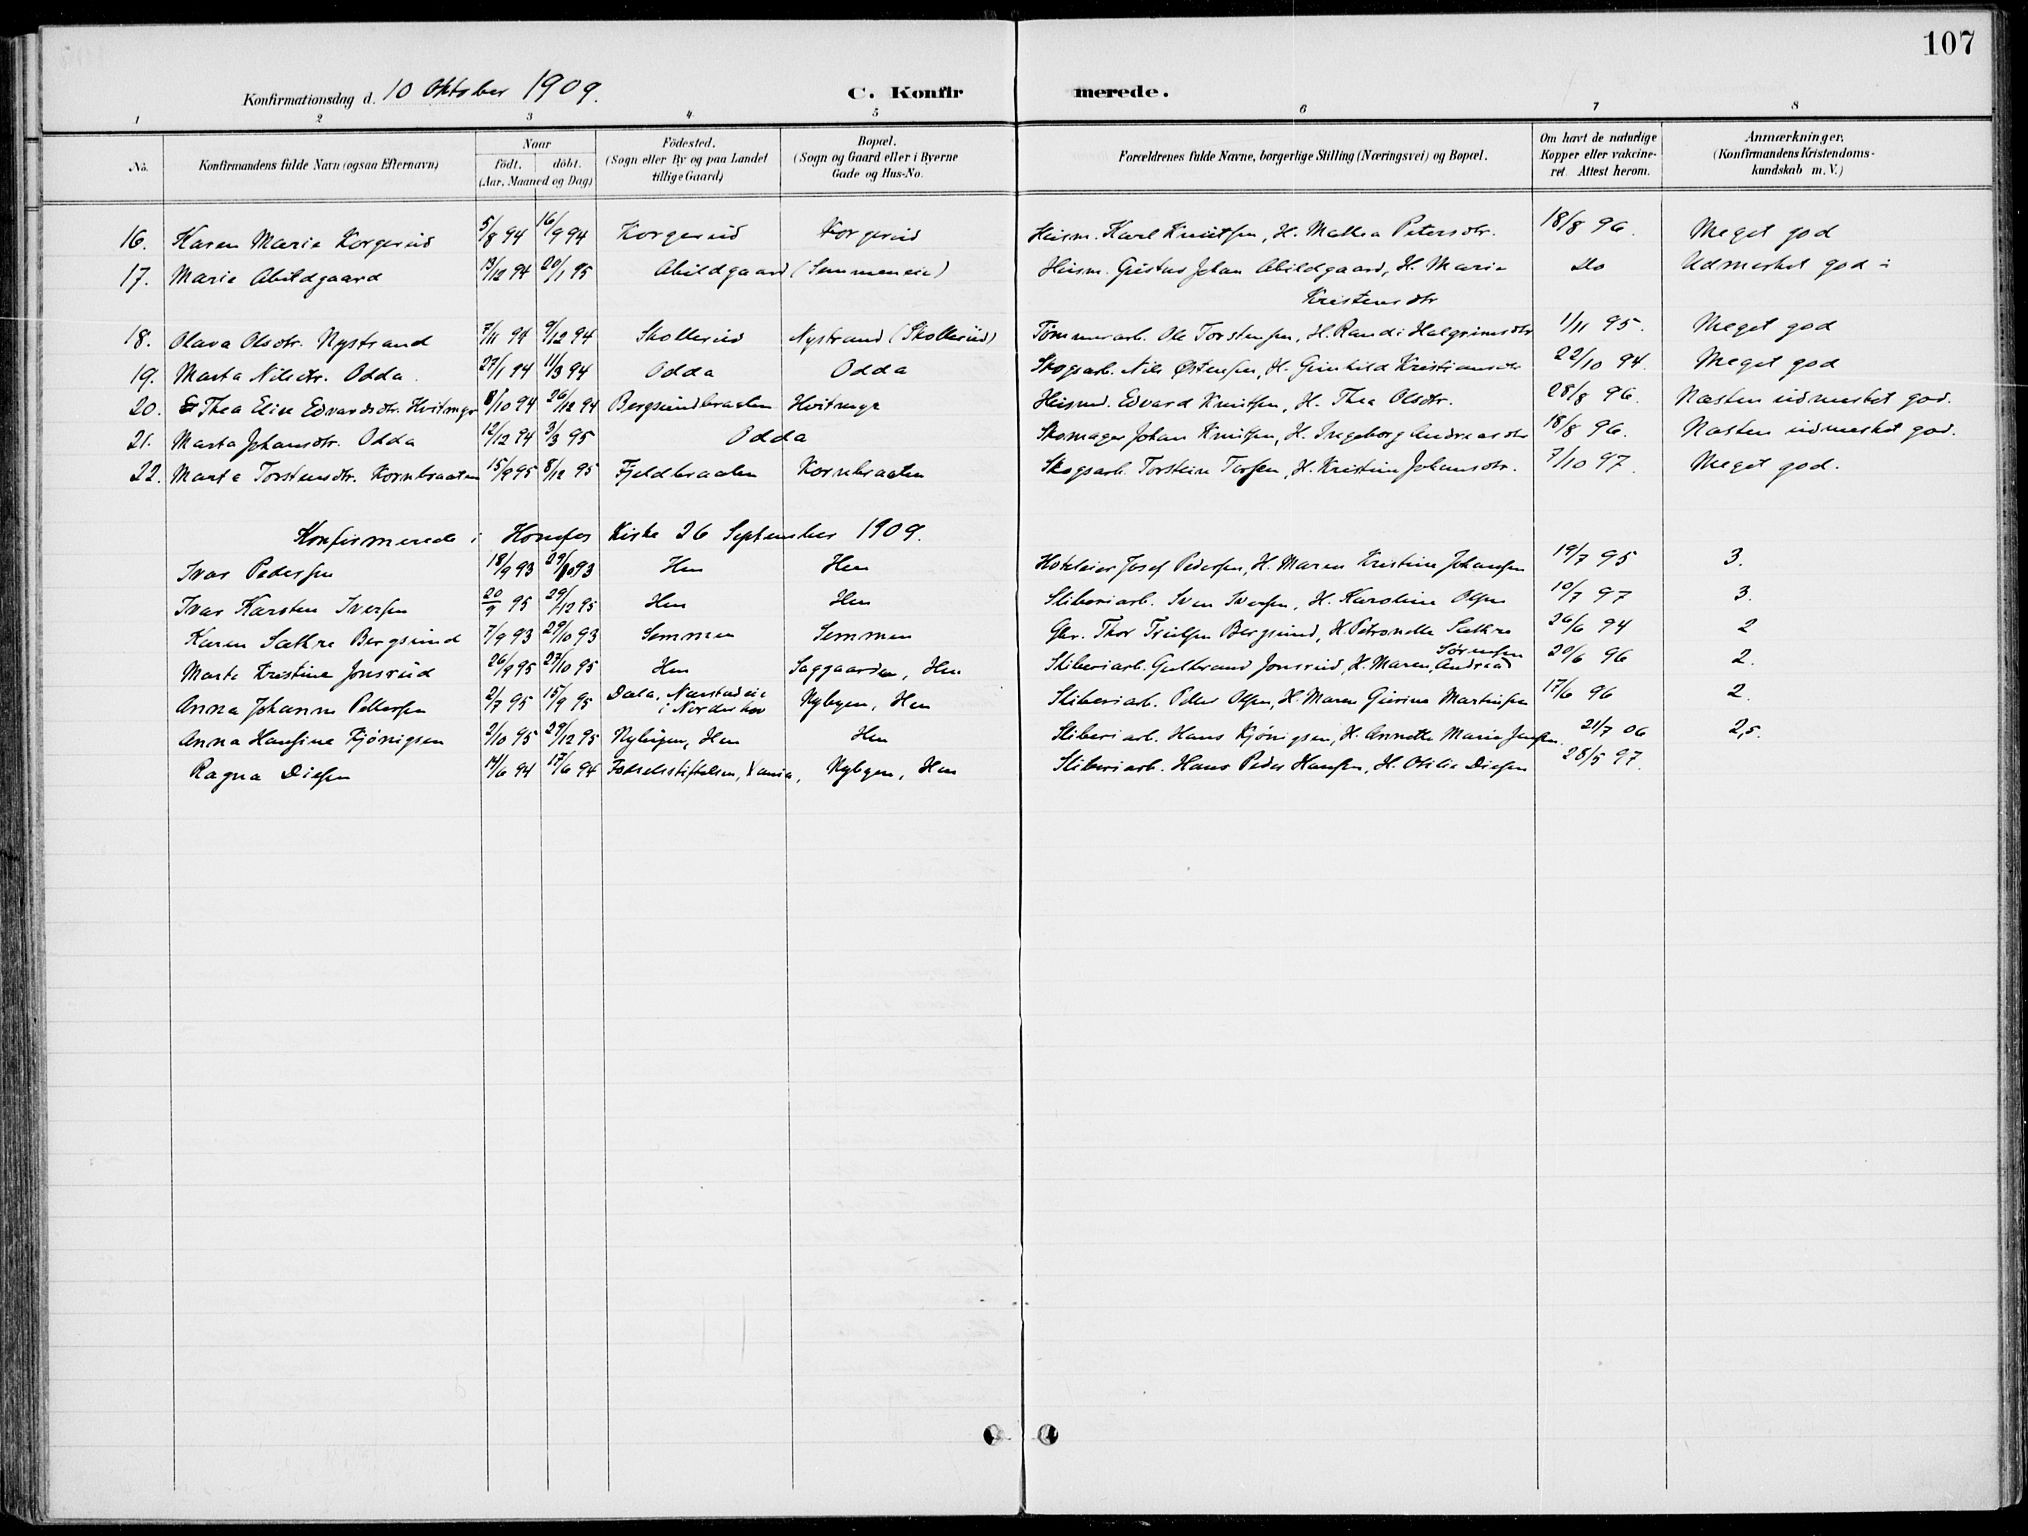 107
Konfirmationsdag d. 10 Oktober 1909. C. Konfirmerede.
1 2 3 4 5 6 7 8
No. Konfirmandens fulde Navn (ogsaa Efternavn) Naar födt. döbt. (Aar, Maaned og Dag) Födested. (Sogn eller By og paa Landet tillige Gaard) Bopæl. (Sogn og Gaard eller i Byerne Gade og Hus-No. Forældrenes fulde Navne, borgerlige Stilling (Næringsvei) og Bopæl. Om havt de naturlige Kopper eller vakcineret. Attest herom. Anmærkninger, (Konfirmandens Kristendomskundskab m. V.)
16. Karen Marie Korgerud 5/8 94 16/9 94 Korgerud Korgerud Husm. Karl Knutsen, H. Mathea Petersdtr. 18/8 96. Meget god
17. Marie Abildgaard 13/12 94 20/1 95 Abildgaard (Semmeneie) Husm. Gustav Johan Abildgaard, H. Marie Do Udmerket god ÷
Kristensdtr
18. Olava Olsdtr. Nystrand 7/11 94 9/12 94 Skollerud Nystrand (Skollerud) Tømmerarb. Ole Torstensen, H. Randi Halgrimsdtr 1/11 95. Meget god
19. Marta Nilsdtr. Odda. 27/1 94 11/3 94 Odda Odda Skogsarb. Nils Østensen, H. Gunhild Kristiansdtr 22/10 94. Meget god
20. Thea Elise Edvardsdtr. Hvitmyr 8/10 94 26/12 94 Bergsundbraaten Hvitmyr Husmd. Edvard Knutsen, H. Thea Olsdtr. 28/8 96. Næsten udmerket god.
21. Marta Johansdtr. Odda 12/12 94 3/3 95 Odda Skomager Johan Knutsen, H. Ingeborg Andreasdtr 18/8 96. Næsten udmerket god.
22. Marta Torstensdtr. Kornbraaten 15/9 95 8/12 95 Fjeldbraaten Kornbraaten Skogsarb. Torstein Torsen, H. Kristine Johansdtr. 7/10 97. Meget god.
Konfirmerede i Honefos Kirke 26 September 1909.
Ivar Pedersen 18/9 93 29/10 93 Hen Hen Hoteleier Josef Pedersen, H. Maren Kristine Johansen 19/7 95 3.
Ivar Karsten Iversen 20/9 95 29/12 95 Hen Hen Sliberiarb. Iver Iversen, H. Karoline Olsen 10/7 97 3.
Karen Sætre Bergsund 7/9 93 29/10 93 Semmen Semmen Gbr. Thor Truelsen Bergsund, H. Petronella Sætre 26/6 94 2
Marte Kristine Jonsrud 26/9 95 27/10 95 Hen Saggaarden, Hen Sliberiarb. Gulbrand Jonsrud, H. Maren Andrea Sörensen 20/6 96 2.
Anna Johanne Pettersen 2/7 95 15/9 95 Dala, Narstadeie i Norderhov Nybyen, Hen Sliberiarb. Peder Olsen, H. Maren Gurine Martinsen 17/6 96 2.
Anna Hansine Kjønigsen 2/10 95 29/12 95 Nybyen, Hen Hen Sliberiarb. Hans Kjønigsen, H. Annette Marie Jensen. 21/7 06 2,5.
Ragna Diesen 14/6 94 17/6 94 Fødselsstiftelsen, Xania, Nybyen, Hen Sliberiarb. Hans Peder Hansen, H. Otilie Diesen 28/5 97.